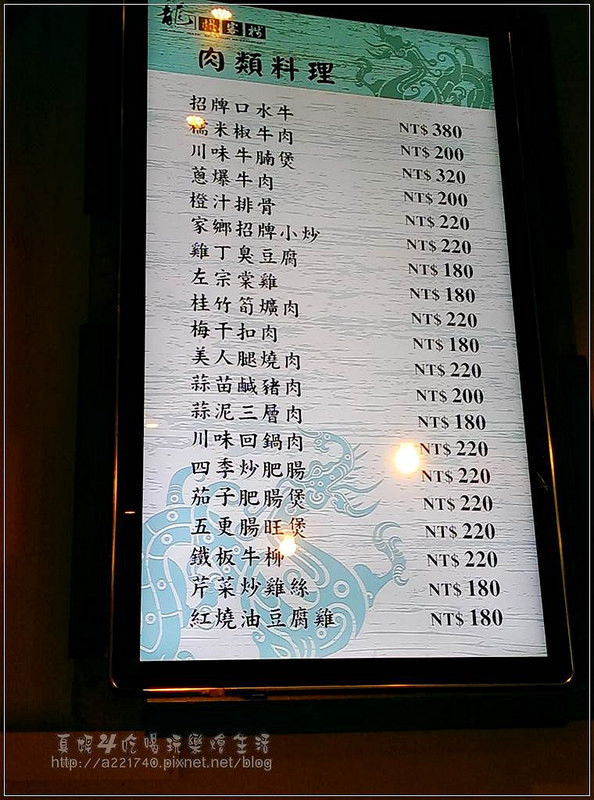 龍 客棧
肉類料理
招牌口水牛 NT$ 380
糯米椒牛肉 NT$ 200
川味牛腩煲 NT$ 320
蔥爆牛肉 NT$ 200
橙汁排骨 NT$ 220
家鄉招牌小炒 NT$ 220
雞丁臭豆腐 NT$ 180
左宗棠雞 NT$ 180
桂竹筍爌肉 NT$ 220
梅干扣肉 NT$ 180
美人腿燒肉 NT$ 220
蒜苗鹹豬肉 NT$ 200
蒜泥三層肉 NT$ 180
川味回鍋肉 NT$ 220
四季炒肥腸 NT$ 220
茄子肥腸煲 NT$ 220
五更腸旺煲 NT$ 220
鐵板牛柳 NT$ 220
芹菜炒雞絲 NT$ 180
紅燒油豆腐雞 NT$ 180
真妮4吃喝玩樂燴生活
http://a221740.pixnet.net/blog